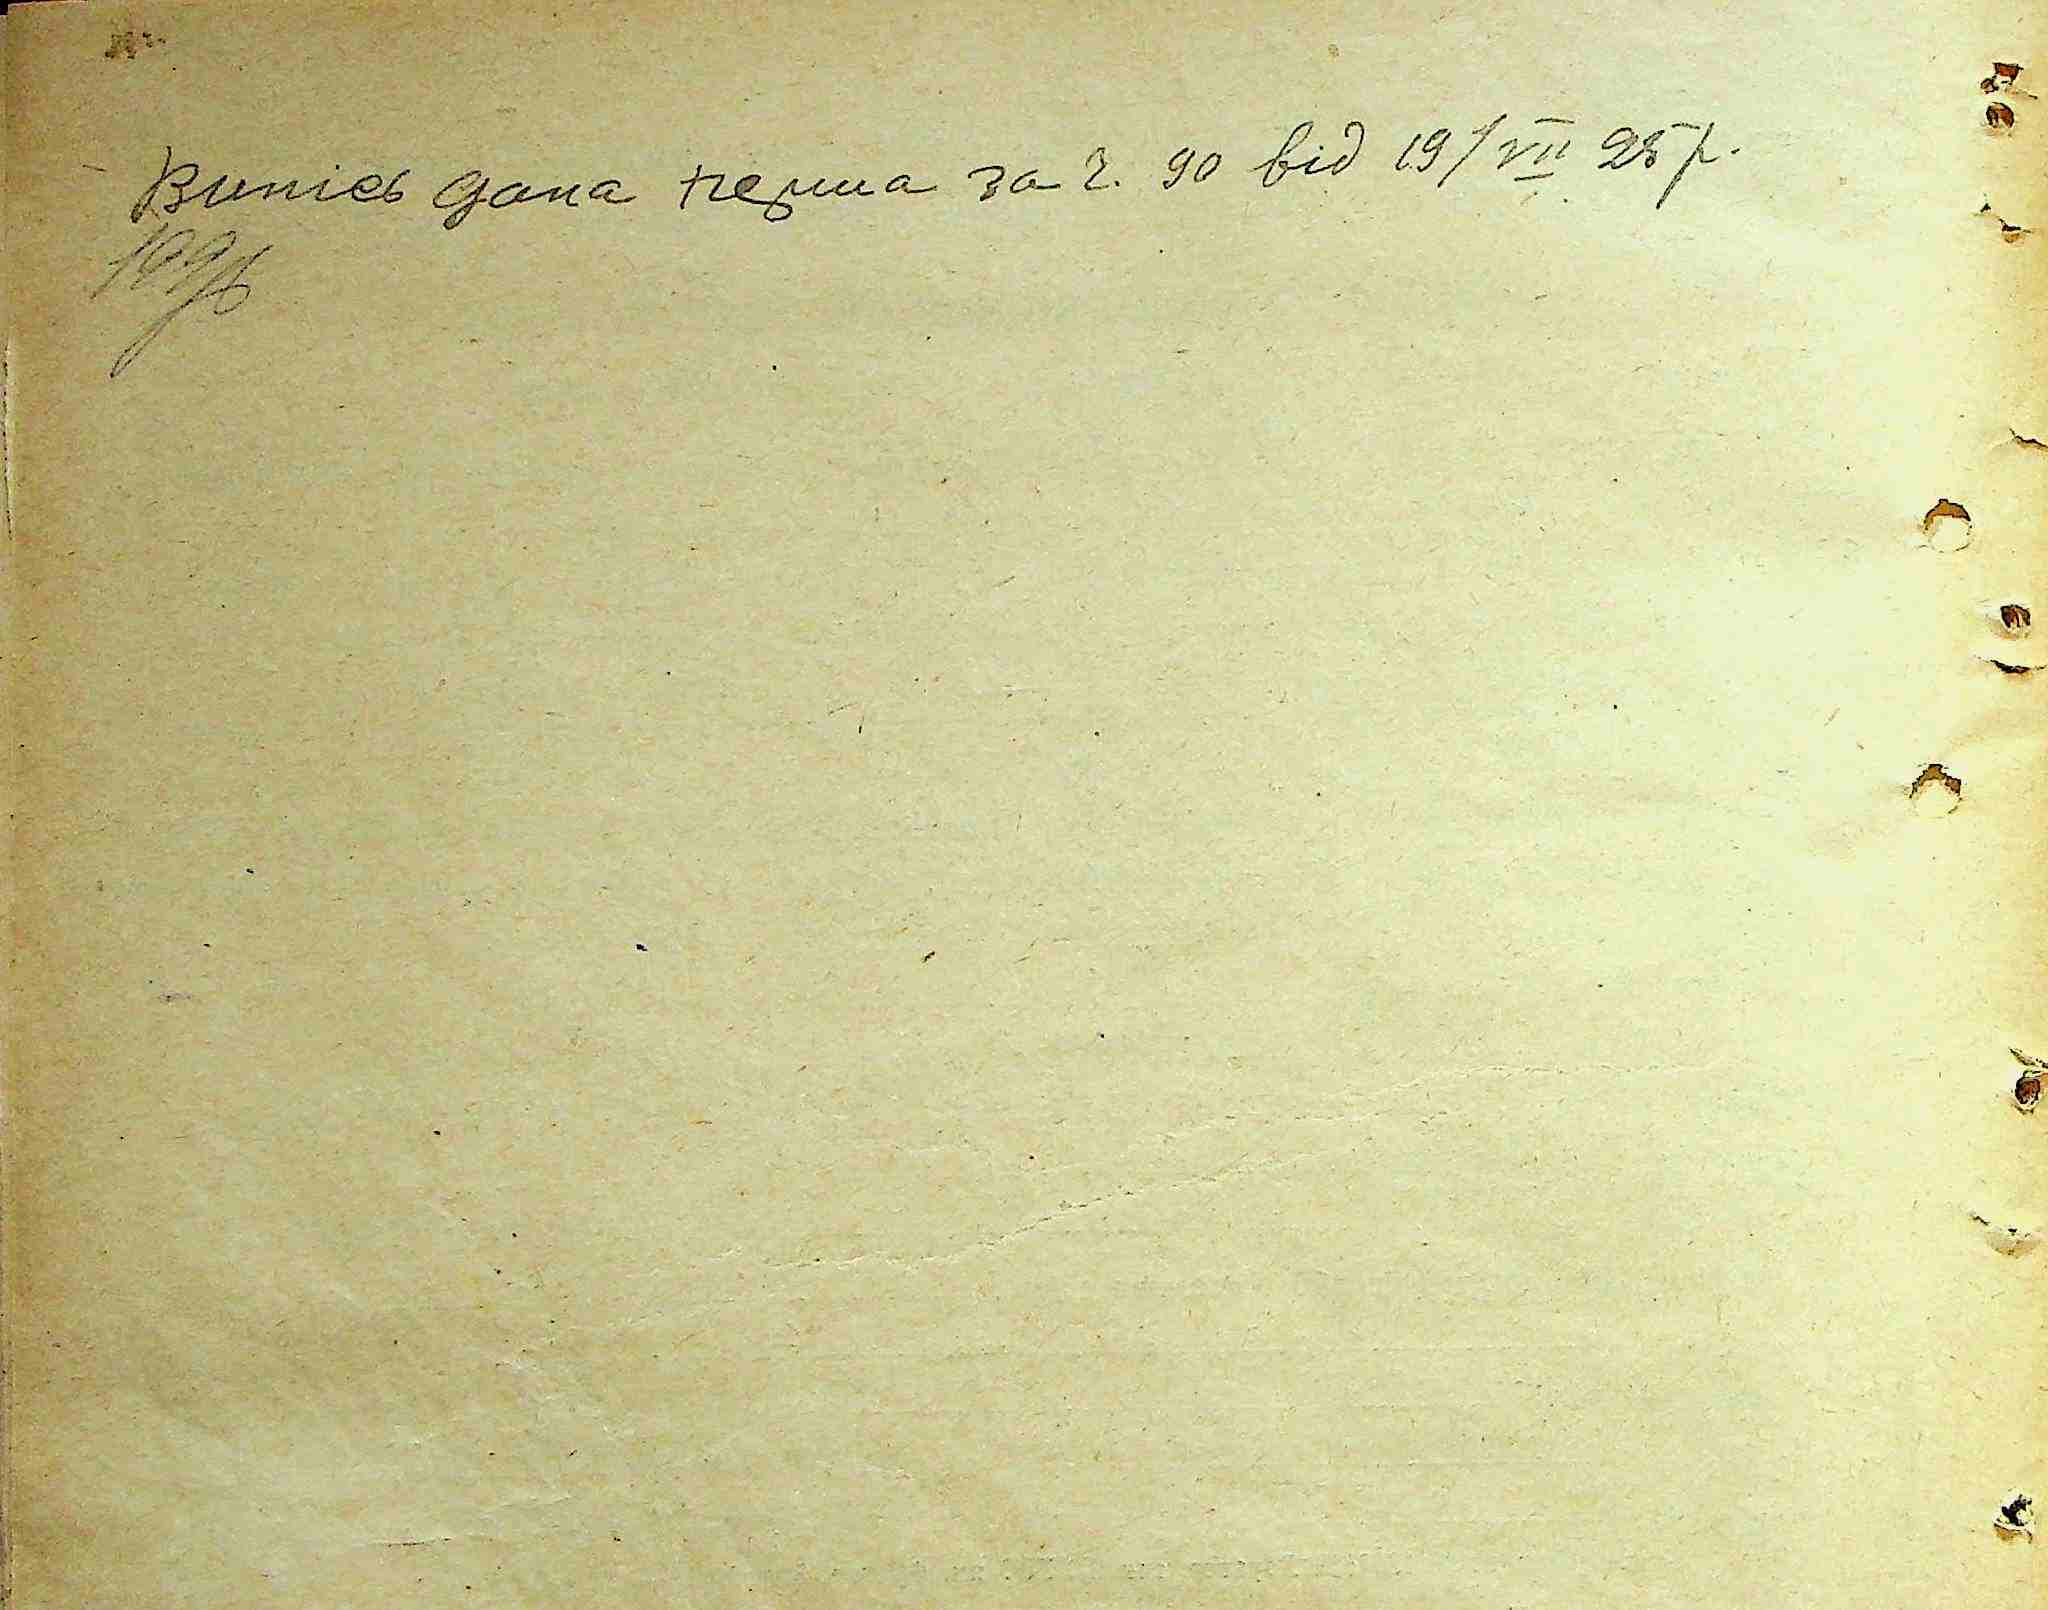 Випісь дана перша за ч. 90 від 19/VII 25 р.